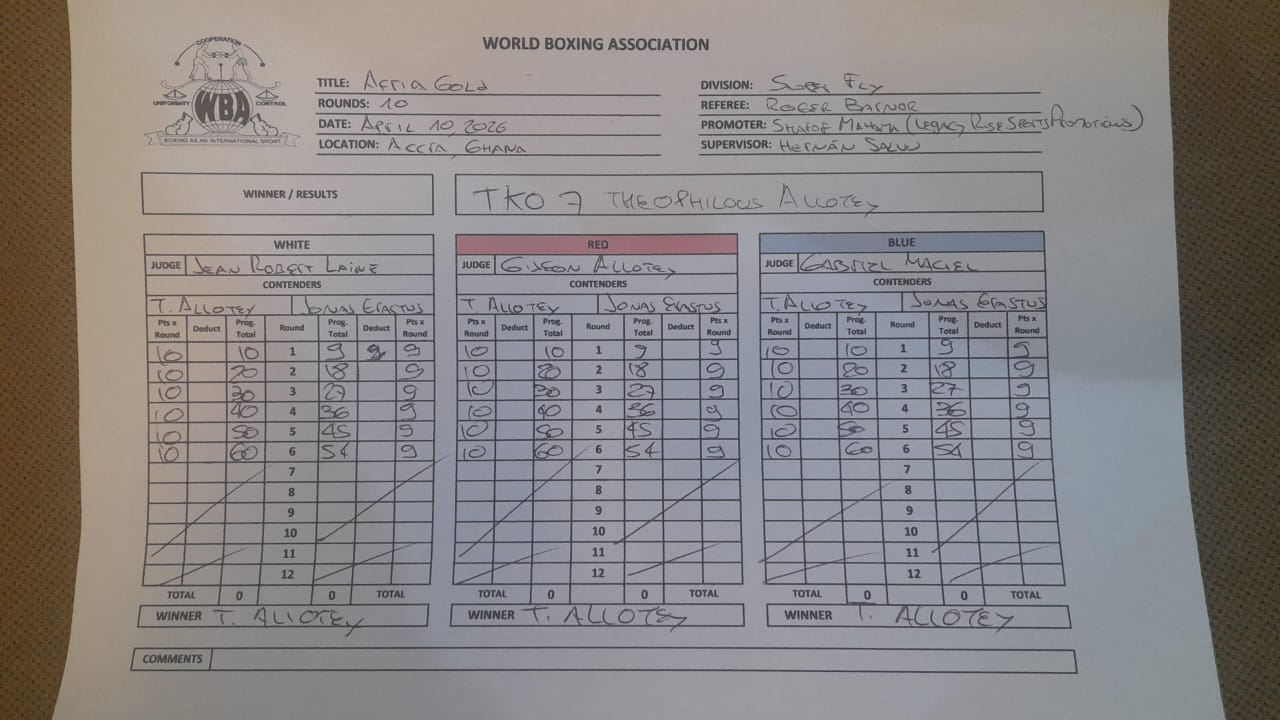 WORLD BOXING ASSOCIATION
COOPERATION
UNIFORMITY WBA CONTROL
BOXING AS AN INTERNATIONAL SPORT
TITLE: AFRIA GOLD
ROUNDS: 10
DATE: APRIL 10, 2026
LOCATION: ACCRA, GHANA
DIVISION: SUPER FLY
REFEREE: ROGER BARNOR
PROMOTER: SHARAF MAHAMA (LEGACY RISE SPORTS PROMOTIONS)
SUPERVISOR: HERNÁN
WINNER / RESULTS
TKO 7 THEOPHILOUS ALLOTEY
WHITE RED BLUE
JUDGE JEAN ROBERT LAINE JUDGE GIDEON ALLOTEY JUDGE GABRIEL MACIEL
CONTENDERS CONTENDERS CONTENDERS
T. ALLOTEY JONAS ERASTUS T. ALLOTEY JONAS ERASTUS T. ALLOTEY JONAS ERASTUS
Pts x Round Deduct Prog. Total Round Prog. Total Deduct Pts x Round Pts x Round Deduct Prog. Total Round Prog. Total Deduct Pts x Round Pts x Round Deduct Prog. Total Round Prog. Total Deduct Pts x Round
10 10 1 9 9 9 10 10 1 9 9 10 10 1 9 9
10 20 2 18 9 10 20 2 18 9 10 20 2 18 9
10 30 3 27 9 10 30 3 27 9 10 30 3 27 9
10 40 4 36 9 10 40 4 36 9 10 40 4 36 9
10 50 5 45 9 10 50 5 45 9 10 50 5 45 9
10 60 6 54 9 10 60 6 54 9 10 60 6 54 9
7 7 7
8 8 8
9 9 9
10 10 10
11 11 11
12 12 12
TOTAL 0 0 TOTAL TOTAL 0 0 TOTAL TOTAL 0 0 TOTAL
WINNER T. ALLOTEY WINNER T. ALLOTEY WINNER T. ALLOTEY
COMMENTS